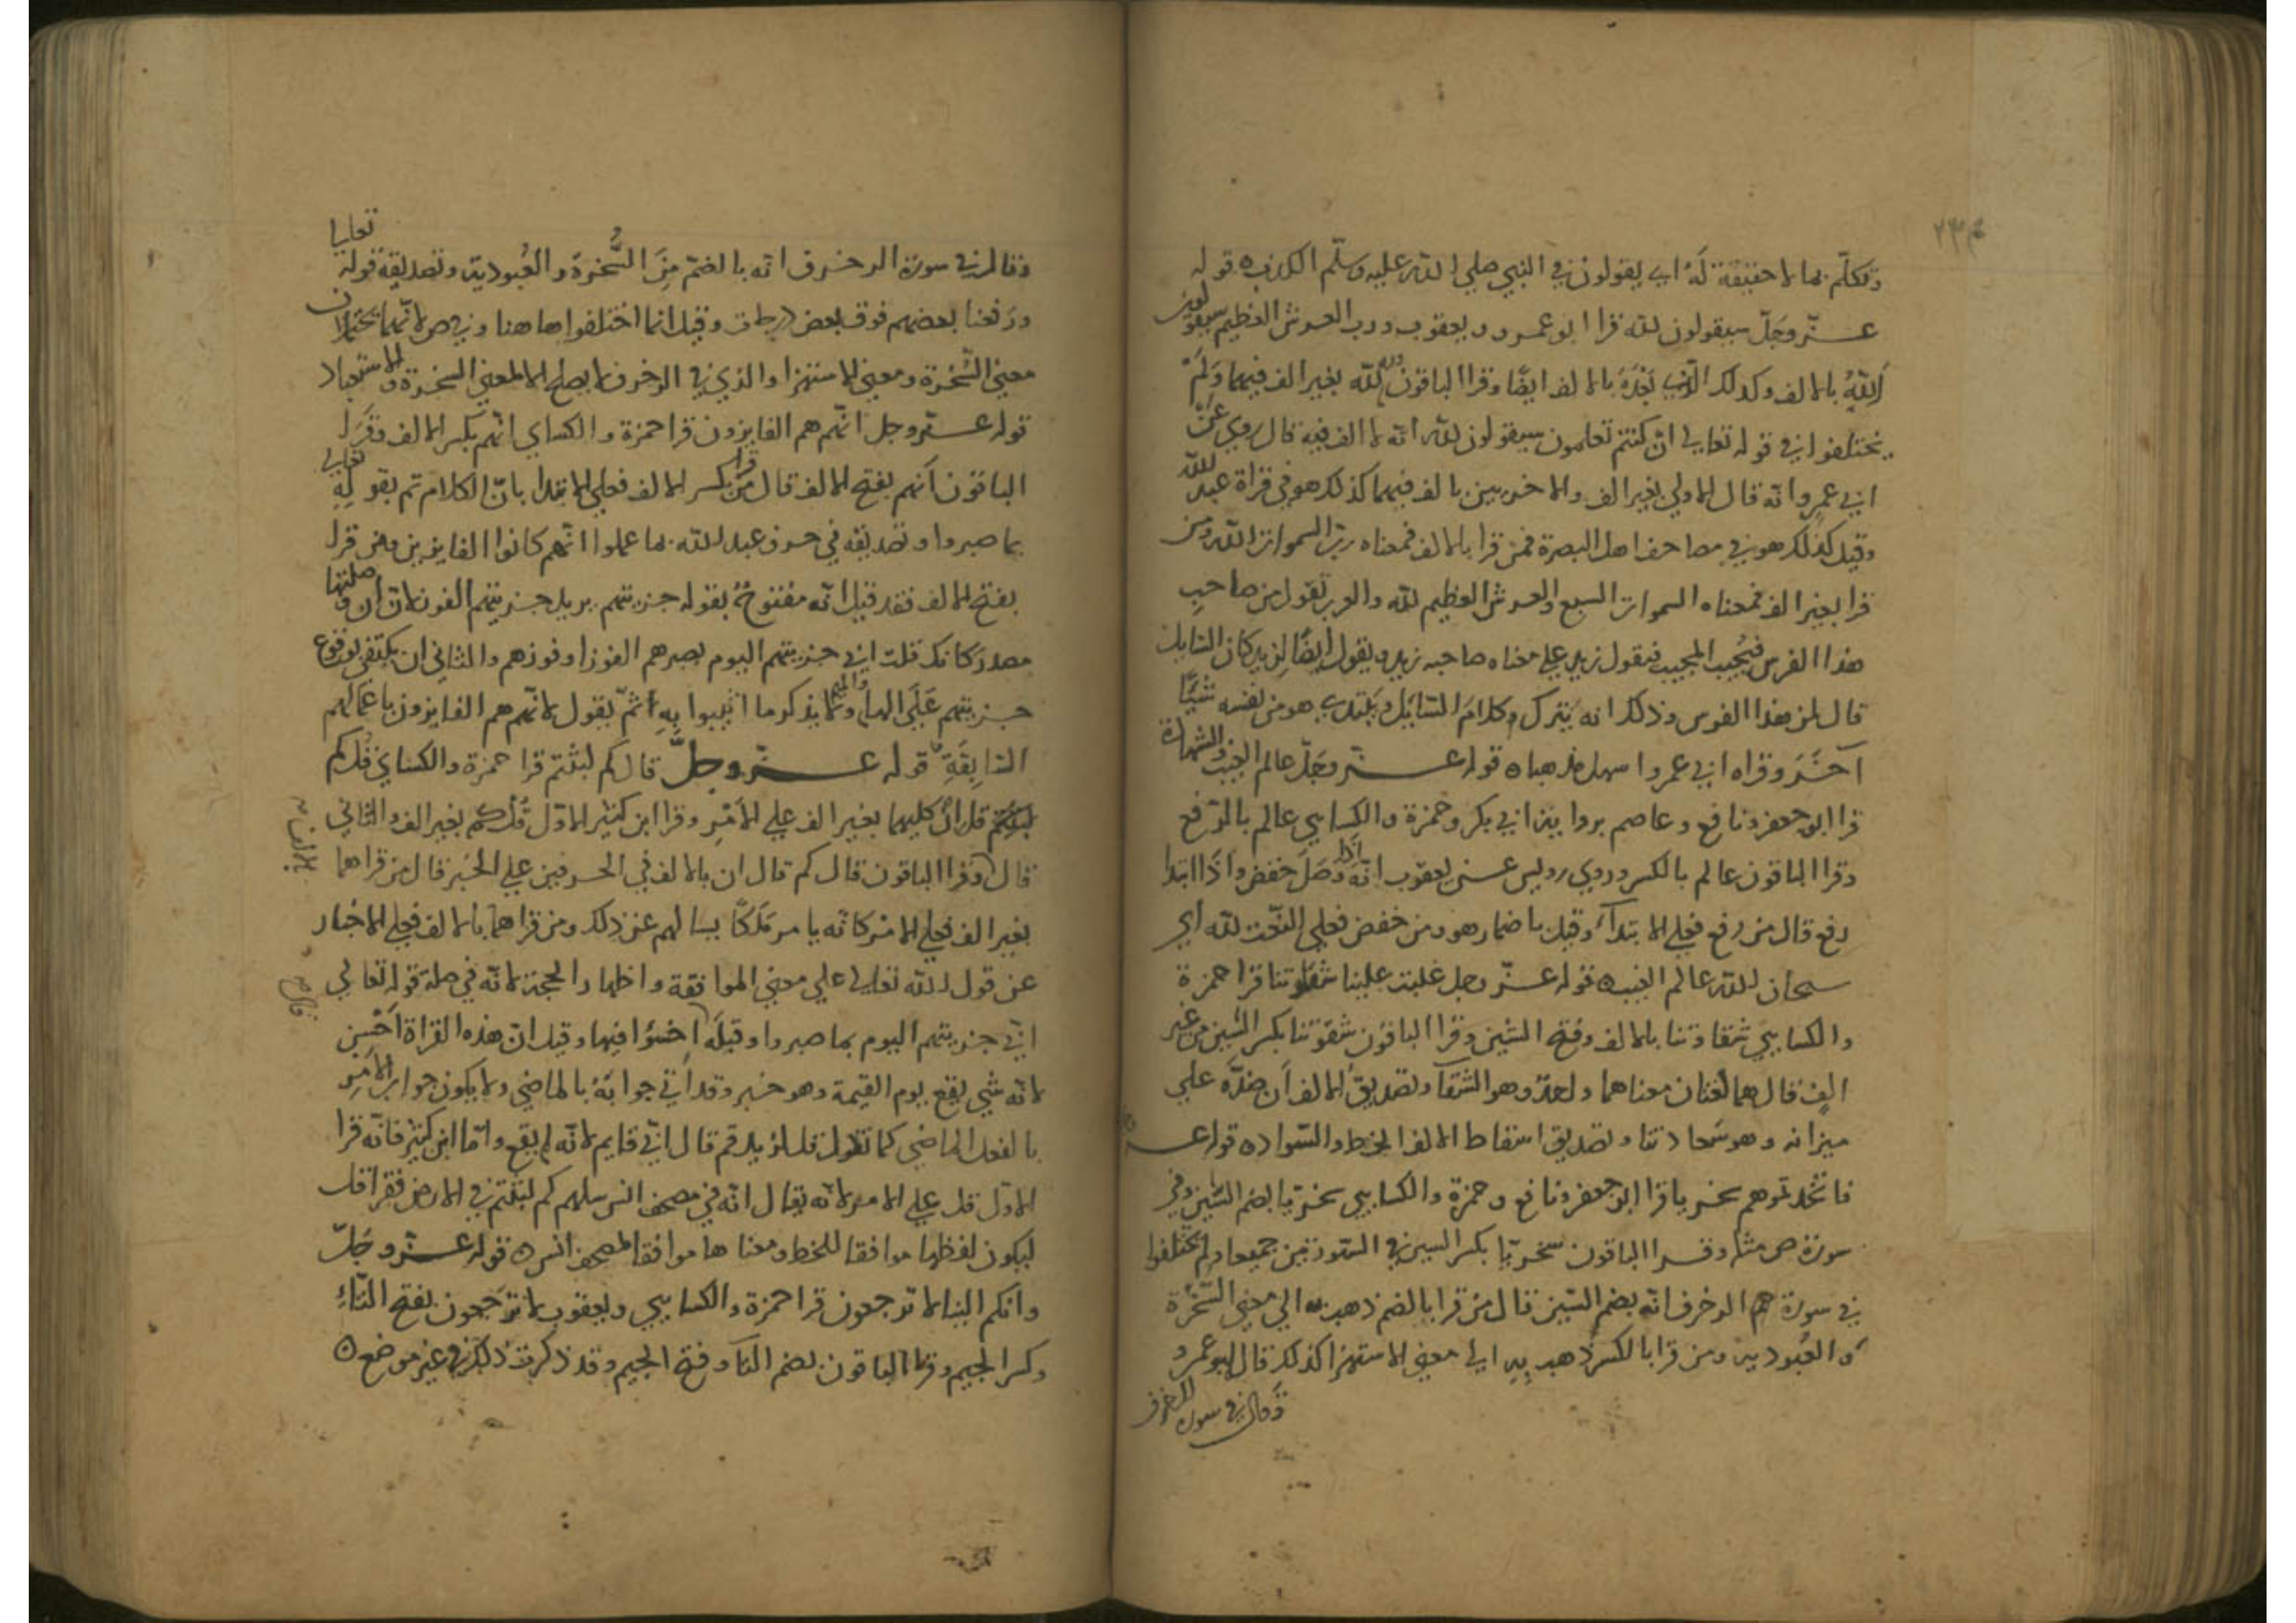 وتكلّم بما لا حقيقة لَهُ اي يقولون في النبي صلي الله عليه وسلّم الكذب ه قوله
عزّ وجَلّ سيقولون لله قرا ابو عمرو ويعقوب ورب العرش العظيم سيقولون
اَللّٰهُ بالالف وكذلك الّذي بَعْدَهُ بالالف ايضًا وقرا الباقون لله لله بغير الف فيهما وَلَمْ
يختلفوا في قوله تعالي ان كنتم تعلمون سيقولون لله انه لا الف فيه قال روي عَنْ
ابي عمرو انه قال الاولي بغير الف والاخريين بالف فيهما كذلك هو في قراة عبد الله
وقيل كذلك هو في مصاحف اهل البصرة فمن قرا بالالف فمعناه ربّ السموات الله ومن
قرا بغير الف فمعناه السموات السبع والعرش العظيم لله والعرب تقول من صاحب
هذا الفرس فيُجيب المجيب فيقول زيد علي معناه صاحبه زيد ويقول ايضًا لزيد كان السّايل
قال لمن هذا الفرس وذلك انه يترك كلامَ السّايل ويبتدي هو من نفسه شيًا
آخَرَ وقراه ابي عمرو اسهل مذهبا ه قوله عزّ وجَلّ عالم الغيب والشهادة
قرا ابو جعفر ونافع وعاصم برواية ابي بكر وحمزة والكسايي عالم بالرّفع
وقرا الباقون عالم بالكسر وروي رويس عن يعقوب انّه اذا وَصَلَ خفض واذا ابتدا
رفع قال من رفع فعلي الابتدآء وقيل باضمار هو ومن خفض فعلي النّعت لله اي
سبحان الله عالم الغيب ه قوله عزّ وجل غلبت علينا شقوتنا قرا حمزة
والكسايي شقاوتنا بالالف وفتح الشين وقرا الباقون شقوتنا بكسر الشين من غير
الفٍ قال هما لغتان معناهما واحدٌ وهو الشقآ وتصديق الالف اَن ضدّه علي
ميزانه وهو سَعادتنا وتصديق اسقاط الالف الخط والسّواد ه قوله عـ
فاتّخذتموهم سخريا قرا ابو جعفر ونافع وحمزة والكسايي سخريّا بضم السّين وفي
سورة ص مثله وقرا الباقون سخريّا بكسر السين في السّورتين جميعا ولم يختلفوا
في سورة الزخرف انّه بضم السّين قال من قرا بالضم ذهب به الي معني السّخرة
والعُبودية ومن قرا بالكسر ذهب بِهِ الي معني الاستهزا كذلك قال ابو عمرو
وقال في سورة الزخرف
وقال في سورة الزخرف انّه بالضمّ مِنَ السُّخرة والعُبودية وتصديقه قوله تعالي
ورَفعنا بعضهم فوق بعض درجات وقيل انما اختلفوا هاهنا وفي ص لانّهما يحتملان
معني السُّخرة ومعني الاستهزا والذي في الزخرف لا يصلح الا لمعني السخرة والاستعباد
قوله عزّ وجل انّهم هم الفايزون قرا حمزة والكساي انّهم بكسر الالف وقرا
الباقون اَنهم بفتح الالف قال مَن قرا بكسر الالف فعلي الابتدا بانّ الكلام تم بقوله تعالي
بما صبروا وتصديقه في حرف عبد الله بما عملوا انّهم كانوا الفايزين ومن قرا
بفتح الالف فقد قيل انّه مفتوحٌ بقوله جزيتهم يريد جزيتهم الفوز لانّ اَن وصلتها
مصدرَ كانك قلت اني جزيتهم اليوم بصبرهم الفوز او فوزهم والثاني ان يكتفي بوقوع
جزيتهم عَلَي الها والميم ولا يذكر ما اثيبوا بِهِ ثمّ يقول لانّهم هم الفايزون باعمالهم
السّابِقَةِ قوله عزّ وجلّ قال كم لبثتم قرا حمزة والكساي قُل كم
لبثتم قل اِنْ كليهما بغير الف علي الاَمْرِ وقرا ابن كثير الاوّل قُل كم بغير الف والثاني
بالالف
قال وقرا الباقون قال كم قال ان بالالف في الحرفين علي الخبر قال من قراهما
بغير الف فعلي الامر كانّه يامر مَلَكًا يسالهم عن ذلك ومن قراهما بالالف فعلي الاخبار
عن قول الله تعالي علي معني الموافقة واظهار الحجة لانّه في صلة قوله تعالي
قال
اني جزيتهم اليوم بما صبروا وقبلَه اخسؤا فيها وقيل انّ هذه القراة اَحْسن
لانّه شي يقع يوم القيمة وهو خبر وقد اتي جوابَهُ بالماضي ولا يكون جواب الاَمر
بالفعل الماضي كما تقول قل لزيد قم قال انّي قايم لانّه لم يقع وامّا ابن كثير فانّه قرا
الاوّل قل علي الامر لانّه يقال انّه في مصحف انس سلهم كم لبثتم في الارض فقرا قل
ليكون لفظها موافقا للخط ومعناها موافقا لمصحف انس ه قوله عزّ وجَلّ
وانكم الينا لا ترجعون قرا حمزة والكسايي ويعقوب لا تَرجعون بفتح التّاءِ
وكسر الجيم وقرا الباقون بضم التآ وفتح الجيم وقد ذكرت ذلك في غير موضع ه